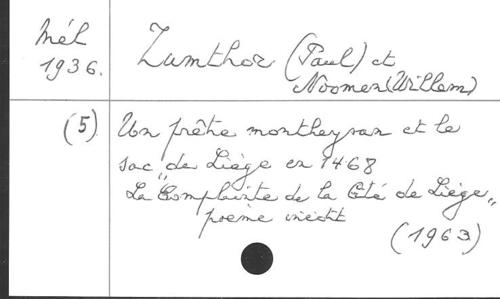 Mél
1936.
Zumthor (Paul) et
Noomen (Willem)
(5)
Un prêtre montheysan et le
sac de Liège en 1468
"La Complainte de la Cité de Liège"
poème inédit
(1963)